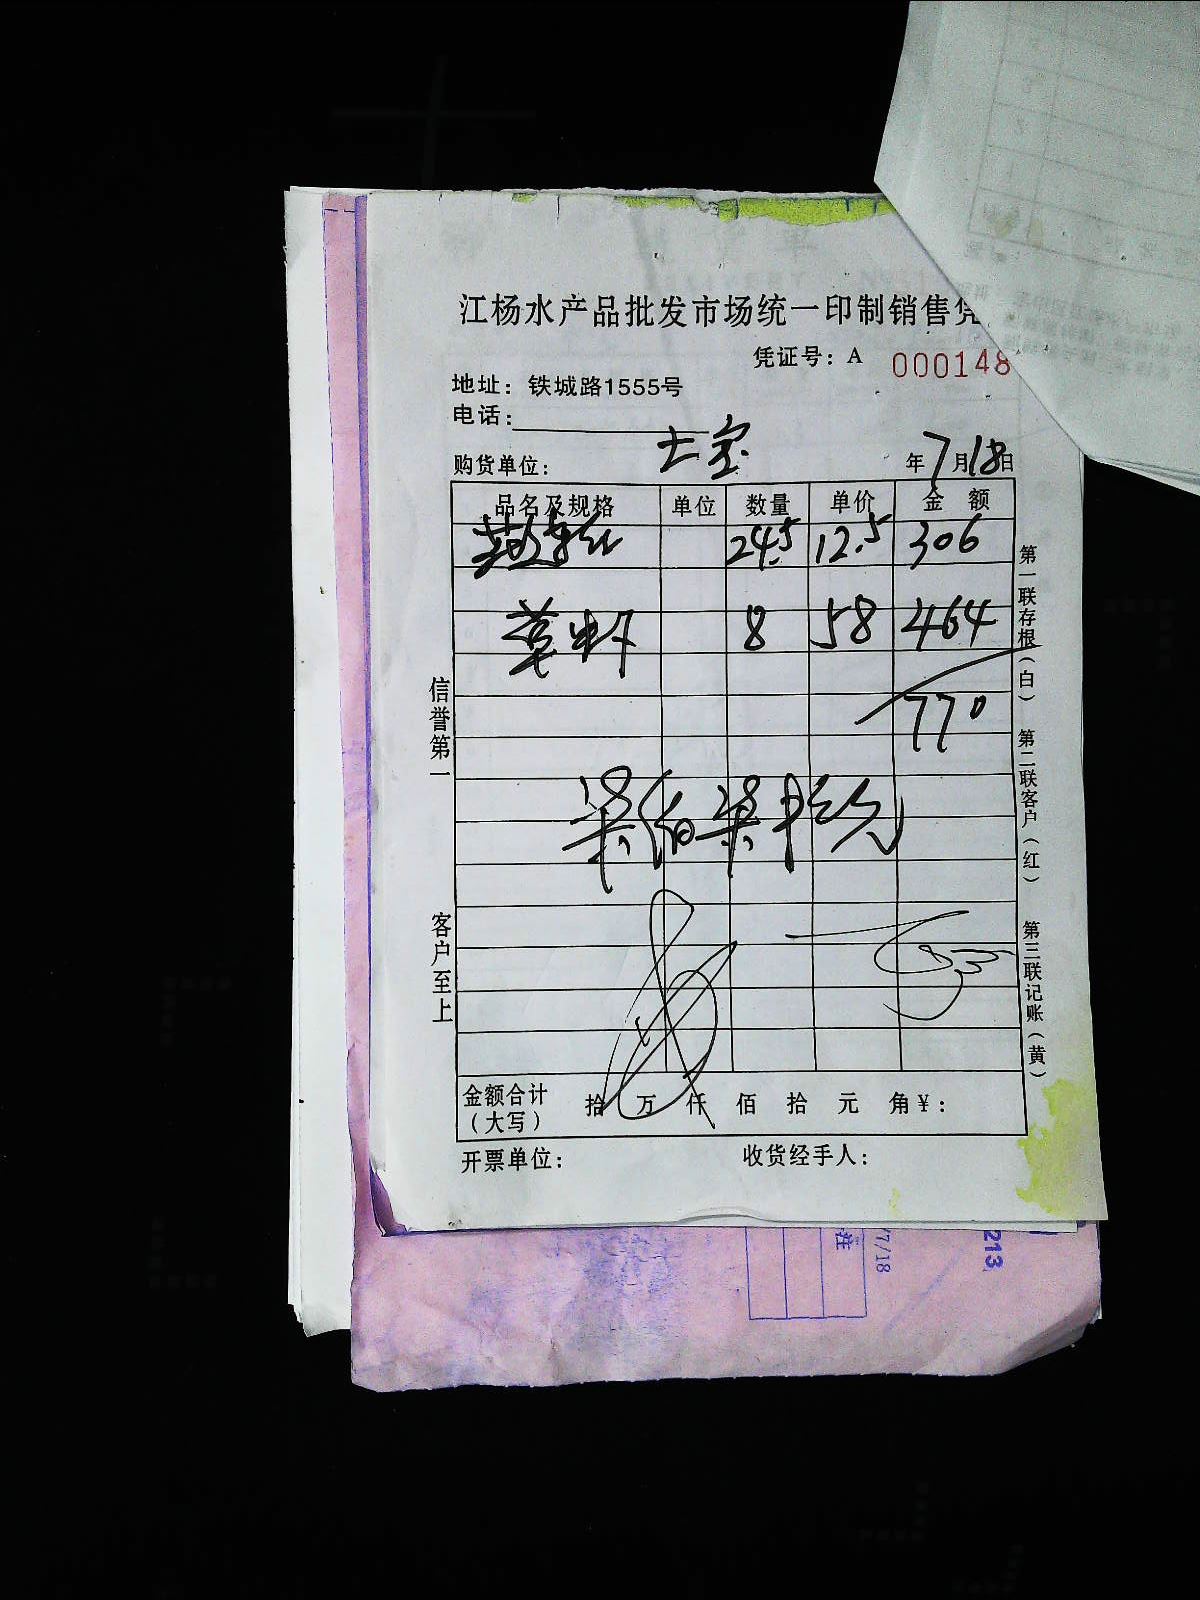 江杨水产品批发市场统一印制销售凭
凭证号：A 000148
地址：铁城路1555号
电话：
购货单位： 七宝 年7月18日
品名及规格 单位 数量 单价 金额
24.5 12.5 306
草虾 8 58 464
770
信誉第一
客户至上
第一联存根（白） 第二联客户（红） 第三联记账（黄）
金额合计（大写） 拾 万 仟 佰 拾 元 角￥：
开票单位： 收货经手人：
注
7/18
213